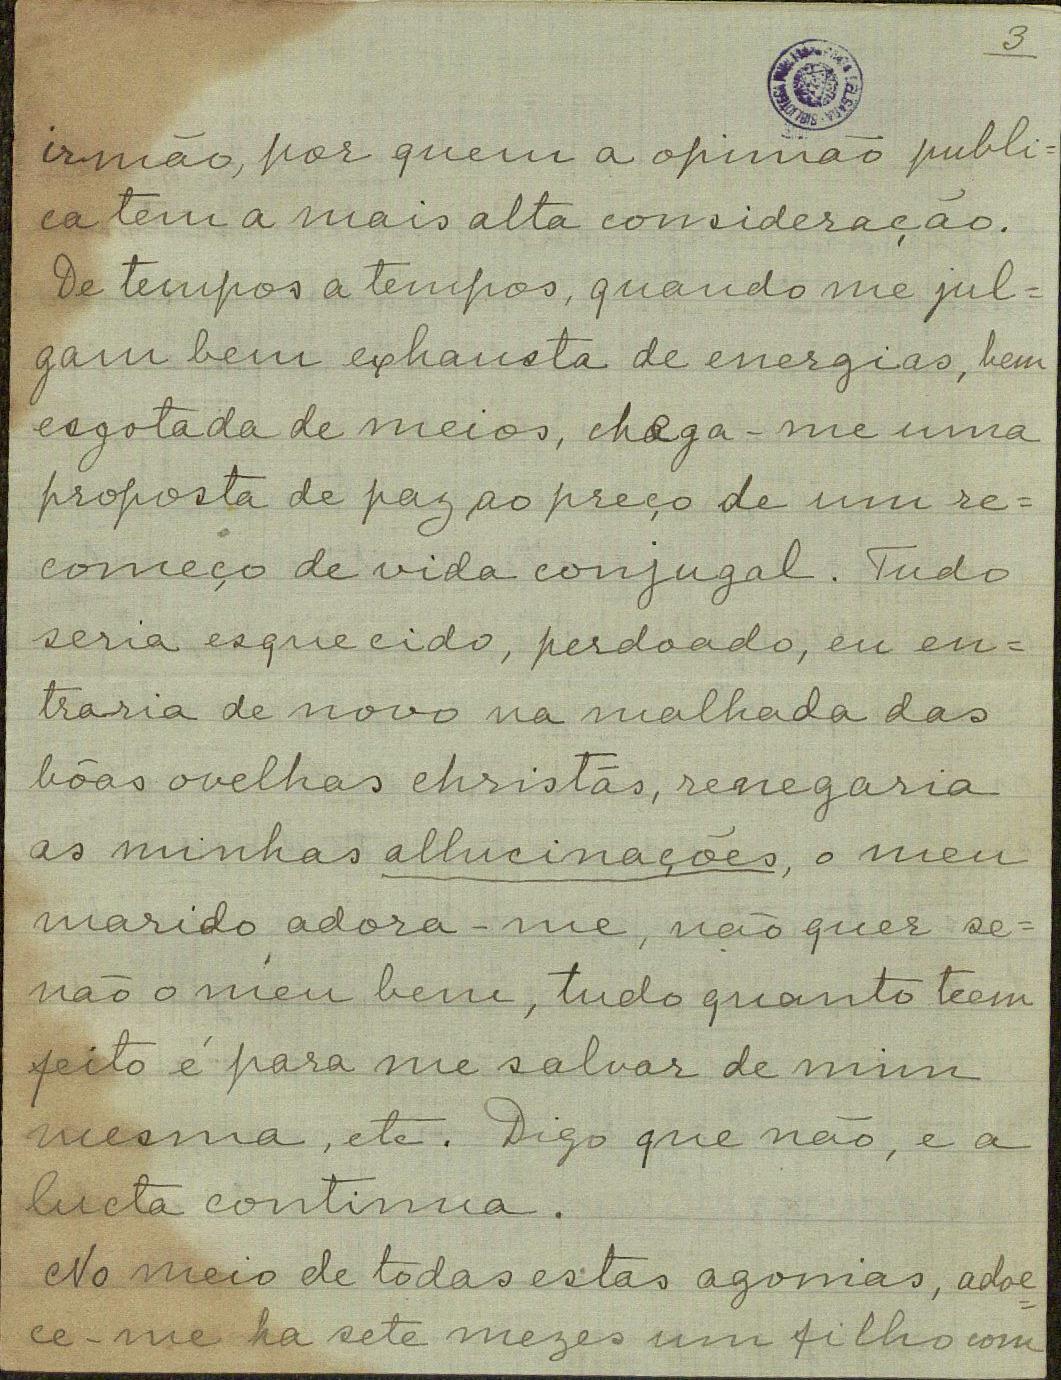 3
irmão, por quem a opinião publi=
ca tem a mais alta consideração.
De tempos a tempos, quando me jul=
gam bem exhausta de energias, bem
esgotada de meios, chega-me uma
proposta de paz ao preço de um re=
começo de vida conjugal. Tudo
seria esquecido, perdoado, eu en=
traria de novo na malhada das
bôas ovelhas christãs, renegaria
as minhas allucinações, o meu
marido adora-me, não quer se=
não o meu bem, tudo quanto teem
feito é para me salvar de mim
mesma, etc. Digo que não, e a
lucta continua.
No meio de todas estas agonias, adoe=
ce-me ha sete mezes um filho com